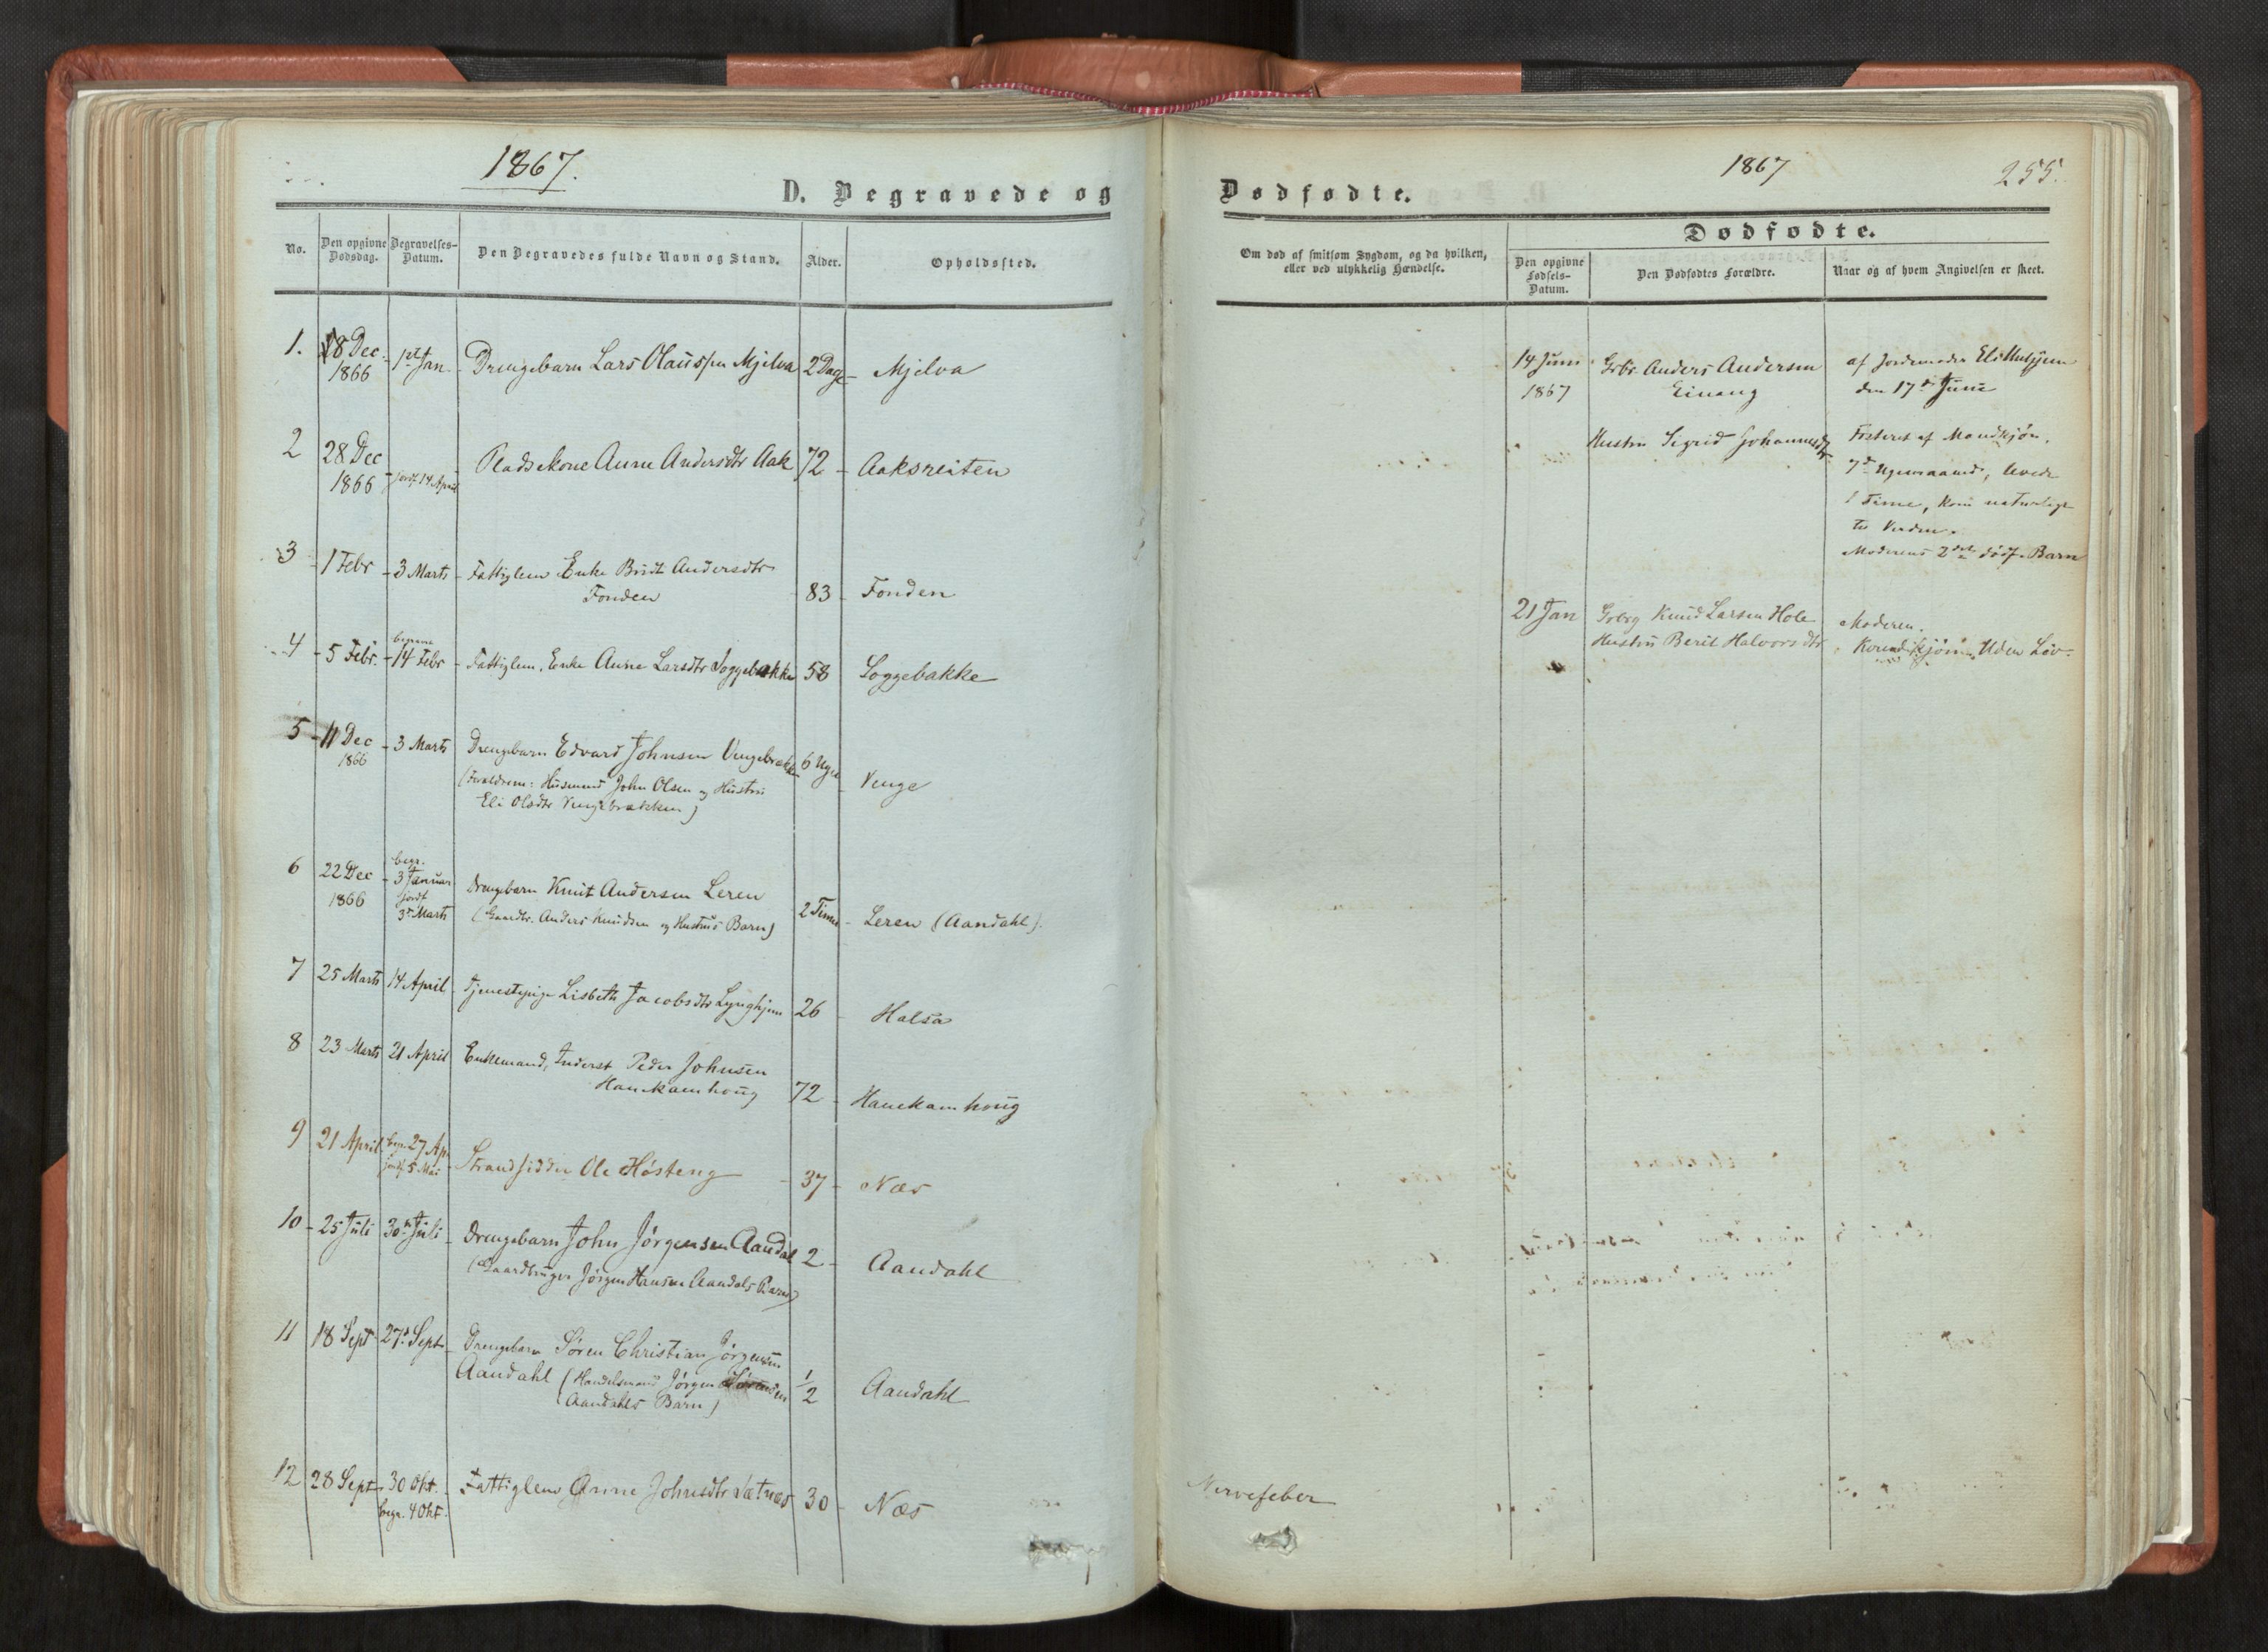 1867.
D. Begravede og
No.
Den opgivne Dødsdag.
Begravelses-Datum.
Den Begravedes fulde Navn og Stand.
Alder.
Opholdssted.
1. 18 Dec 1866 1ste Jan Drengebarn Lars Olaussen Mjelva 2 Dage Mjelva
2 28 Dec 1866 jordf. 14 April Pladsekone Anne Andersdtr Aak 72 Aaksreiten
3 1 Febr 3 Marts Fattiglem Enke Bridt Andersdtr
Fonden 83 Fonden
4 5 Febr. 14 Febr Fattiglem, Enke Anne Larsdtr Soggebakke 58 Soggebakke
5 11 Dec 1866 3 Marts Drengebarn Edvard Johnsen Vengebrækken 6 Uger Venge
(Forældrene: Husmand John Olsen og Hustru
Eli Olsdtr Vengebrækken)
6 22 Dec 1866 begr. 3 Januar jordf 3 Marts Drengebarn Knut Andersen Leren 2 Timer Leren (Aandahl).
(Gaardbr. Anders Knudsen og Hustrus Barn)
7 25 Marts 14 April Tjenestepige Lisbeth Jacobsdtr Lynghjem 26 Halsa
8 23 Marts 21 April Enkemand, Inderst Peder Johnsen
Hanekamhoug 72 Hanekamhoug
9 21 April begr. 27 Ap. jordf. 5 Mai Strandsidder Ole Høsteng 37 Næs
10 25 Juli 30 Juli Drengebarn John Jørgensen Aandal 2 Aandahl
(Gaardbruger Jørgen Hansen Aandals Barn)
11 18 Sept 27 Sept Drengebarn Søren Christian Jørgensen
Aandahl (Handelsmand Jørgen 1/2 Aandahl
Aandahls Barn)
12 28 Sept 30 Okt. begr. 4 Okt. Fattiglem Anne Johnsdtr Sætnes 30 Næs
1867
255.
Dødfødte.
Om død af smitsom Sygdom, og da hvilken,
eller ved ulykkelig Hændelse.
Dødfødte.
Den opgivne Fødsels-Datum.
Den Dødfødtes Forældre.
Naar og af hvem Angivelsen er skeet.
14 Juni 1867
Grbr Anders Andersen
Einang
Hustru Sigrid Johannesdtr
af Jordemoder Eli
den 17de Juni
Fosteret af Mandkjøn,
levede
1 Time, kom naturligt
til Verden.
Moderens 2det dødf. Barn
21 Jan
Grbrg Knud Larsen Hole
Hustru Berit Halvorsdtr
Moderen.
Kvindekjøn, Uden Liv.
Nervefeber